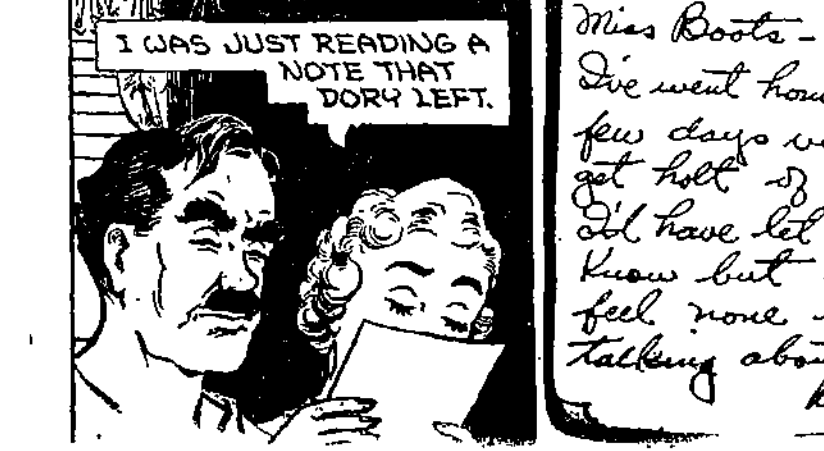 I WAS JUST READING A
NOTE THAT
DORY LEFT.
Miss Boots-
I've went
few days
get holt of
I'd have let
Know but
feel none
talking